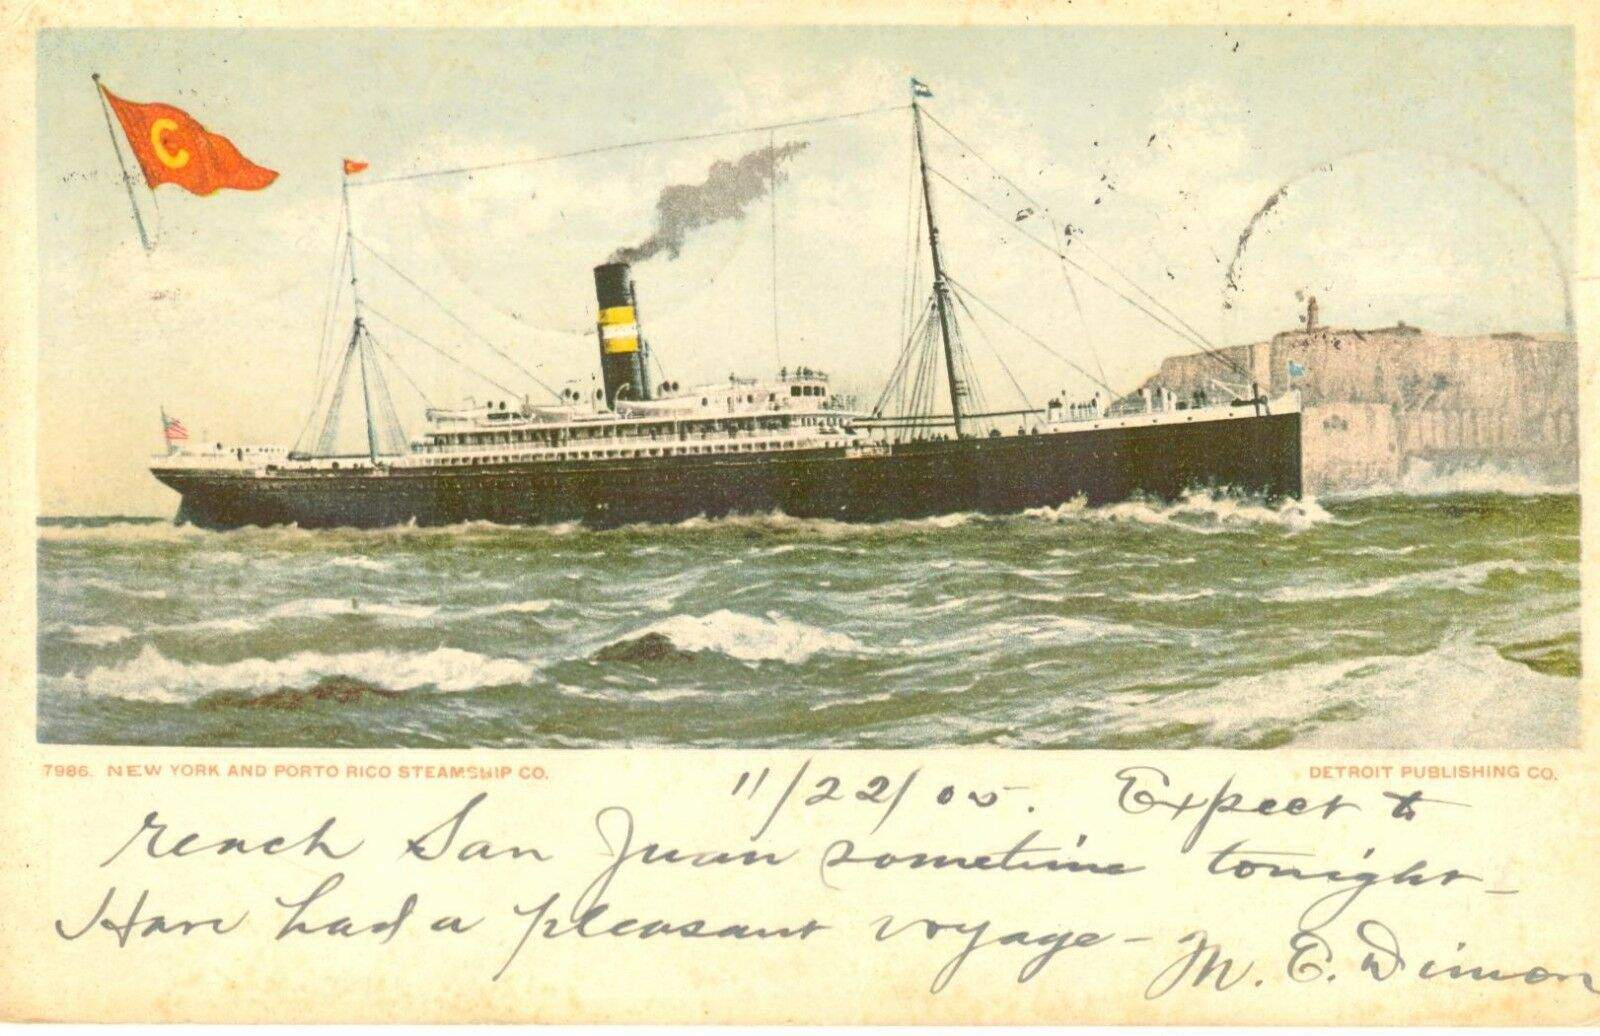 C
7986. NEW YORK AND PORTO RICO STEAMSHIP CO.
DETROIT PUBLISHING CO.
11/22/05. Expect to
reach San Juan sometime tonight –
Have had a pleasant voyage – M. E. Dimon